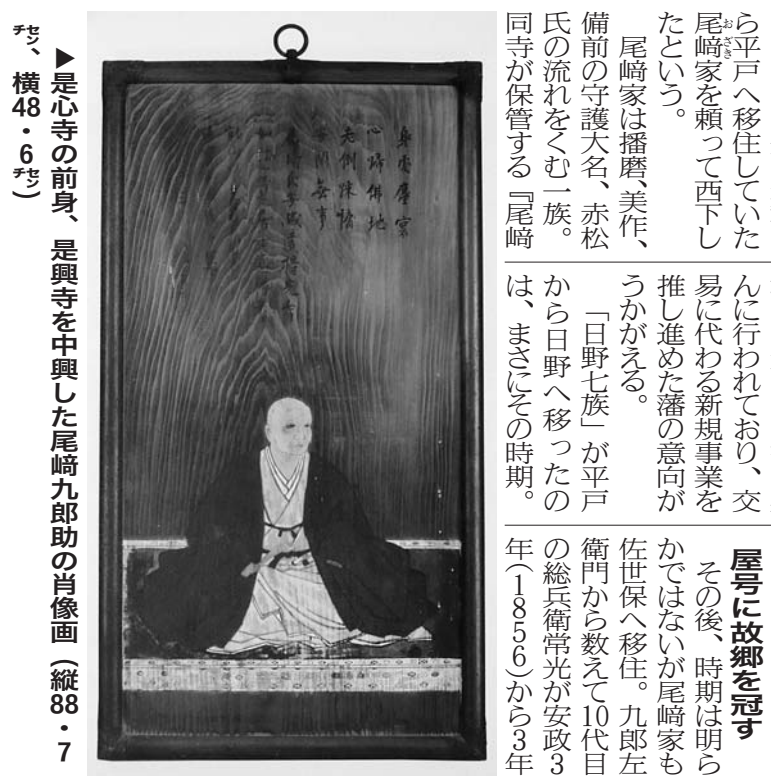 ら平戸へ移住していた
尾﨑家を頼って西下し
おざき
たという。
尾﨑家は播磨、美作、
備前の守護大名、赤松
氏の流れをくむ一族。
同寺が保管する『尾﨑
んに行われており、交
易に代わる新規事業を
推し進めた藩の意向が
うかがえる。
「日野七族」が平戸
から日野へ移ったの
は、まさにその時期。
屋号に故郷を冠す
その後、時期は明ら
かではないが尾﨑家も
佐世保へ移住。九郎左
衛門から数えて10代目
の総兵衛常光が安政3
年(1856)から3年
身處塵寰
心歸佛地
老倒疎慵
閑無事
▶是心寺の前身、是興寺を中興した尾﨑九郎助の肖像画（縦88・7
㌢、横48・6㌢）